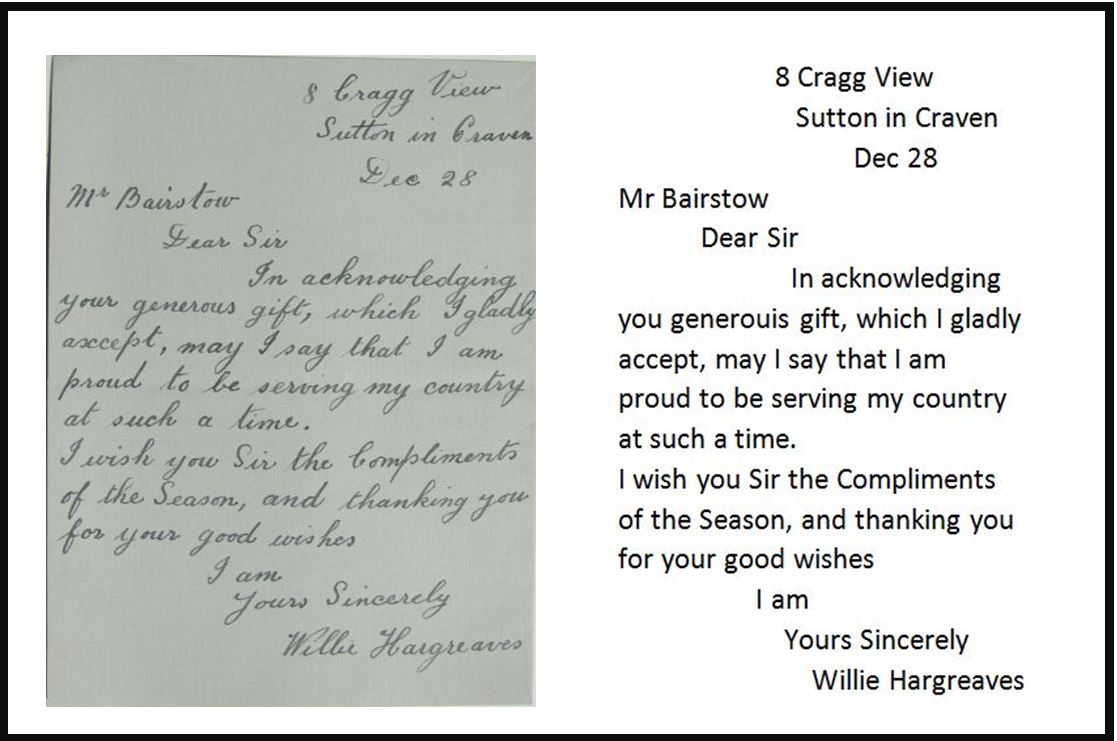 8 Cragg View
Sutton in Craven
Dec 28
Mr Bairstow
Dear Sir
In acknowledging
your generous gift, which I gladly
asccept, may I say that I am
proud to be serving my country
at such a time.
I wish you Sir the Compliments
of the Season, and thanking you
for your good wishes
I am
Yours Sincerely
Willie Hargreaves
8 Cragg View
Sutton in Craven
Dec 28
Mr Bairstow
Dear Sir
In acknowledging
you generouis gift, which I gladly
accept, may I say that I am
proud to be serving my country
at such a time.
I wish you Sir the Compliments
of the Season, and thanking you
for your good wishes
I am
Yours Sincerely
Willie Hargreaves